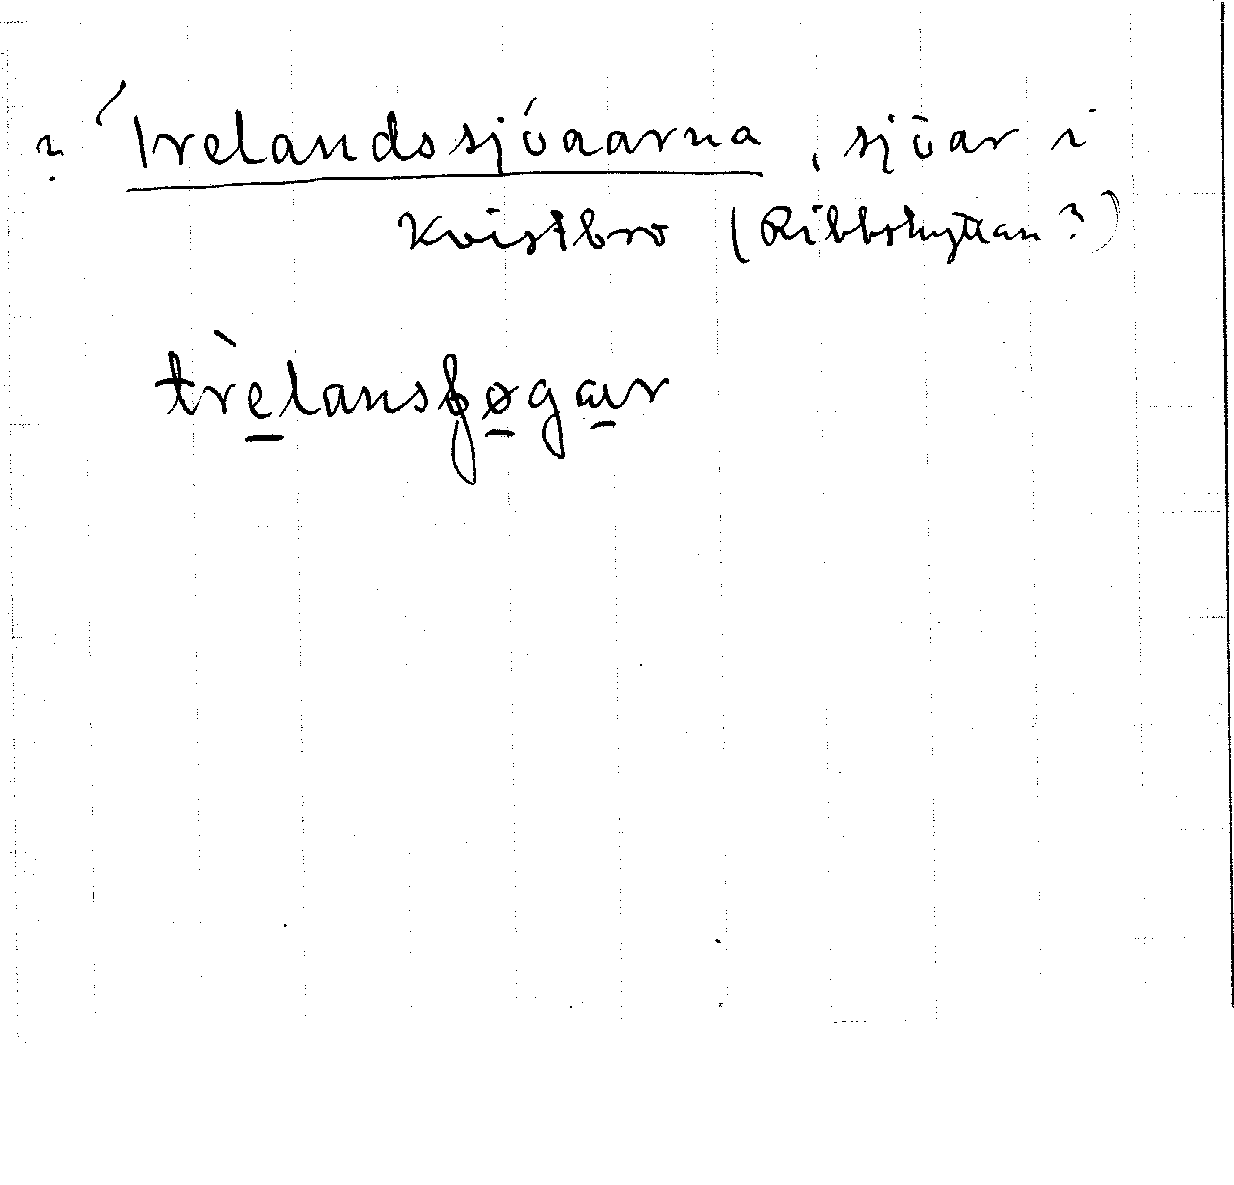 ? ´Irelandssjöaarna, sjöar i
Kvistbro (Ribbohyttan?)
trèlansføgar